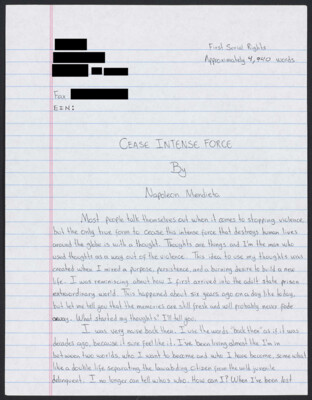 First Serial Rights
Approximately 4,940 words
Fax
EIN:
CEASE INTENSE FORCE
By
Napoleon Mendieta
Most people talk themselves out when it comes to stopping violence
but the only true form to cease this intense force that destroys human lives
around the globe is with a thought. Thoughts are things and I'm the man who
used thought as a way out of the violence. This idea to use my thoughts was
created when I mixed in purpose, persistence, and a burning desire to build a new
life. I was reminiscing about how I first arrived into the adult state prison
extraordinary world. This happened about six years ago on a day like today,
but let me tell you that the memories are still fresh and will probably never fade
away. What started my thoughts? I'll tell you.
I was very naive back then. I use the words "back then" as if it was
decades ago, because it sure feels like it. I've been living almost like I'm in
between two worlds, who I want to become and who I have become, somewhat
like a double life separating the law-abiding citizen from the wild juvenile
delinquent. I no longer can tell who's who. How can I? When I've been lost